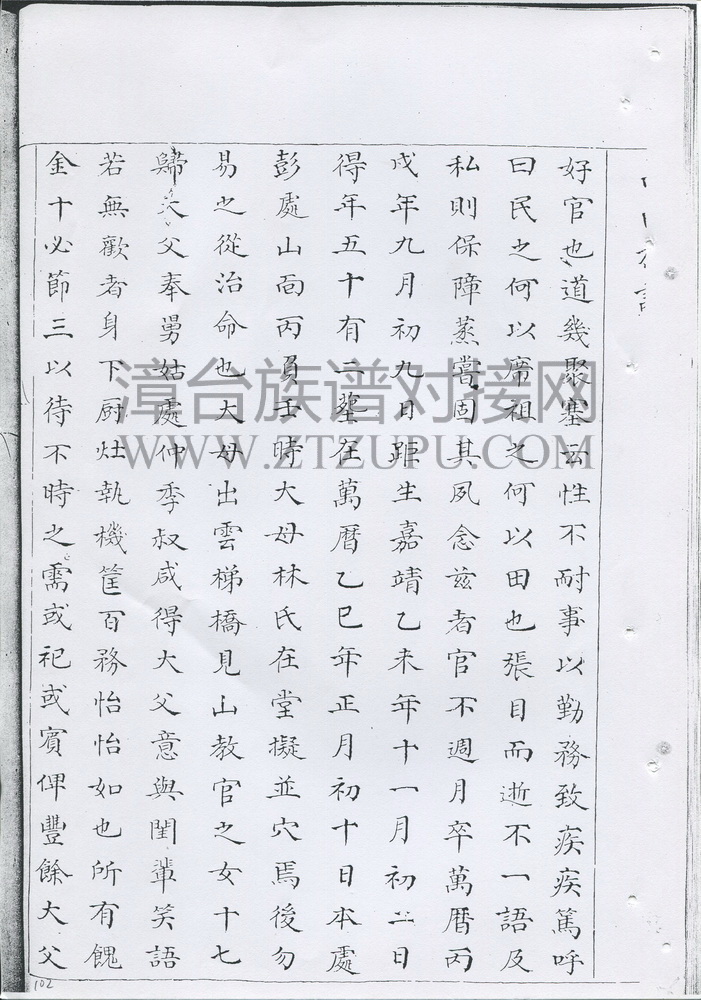 好官也道幾聚塞云性不耐事以勤務致疾疾篤呼
曰民之何以席祖之何以田也張目而逝不一語及
私則保障蒸嘗固其夙念茲者官不週月卒萬曆丙
戍年九月初九日距生嘉靖乙未年十一月初二日
得年五十有二塟在萬曆乙巳年正月初十日本處
彭處山面丙負壬時大母林氏在堂擬並穴焉後勿
易之從治命也大母出雲梯橋見山教官之女十七
歸大父奉舅姑處仲季叔咸得大父意與閨輩笑語
若無歡者身下厨灶執機筐百務怡怡如也所有餽
金十必節三以待不時之需或祀或賓俾豐餘大父
漳台族谱对接网
WWW.ZTZUPU.COM
102